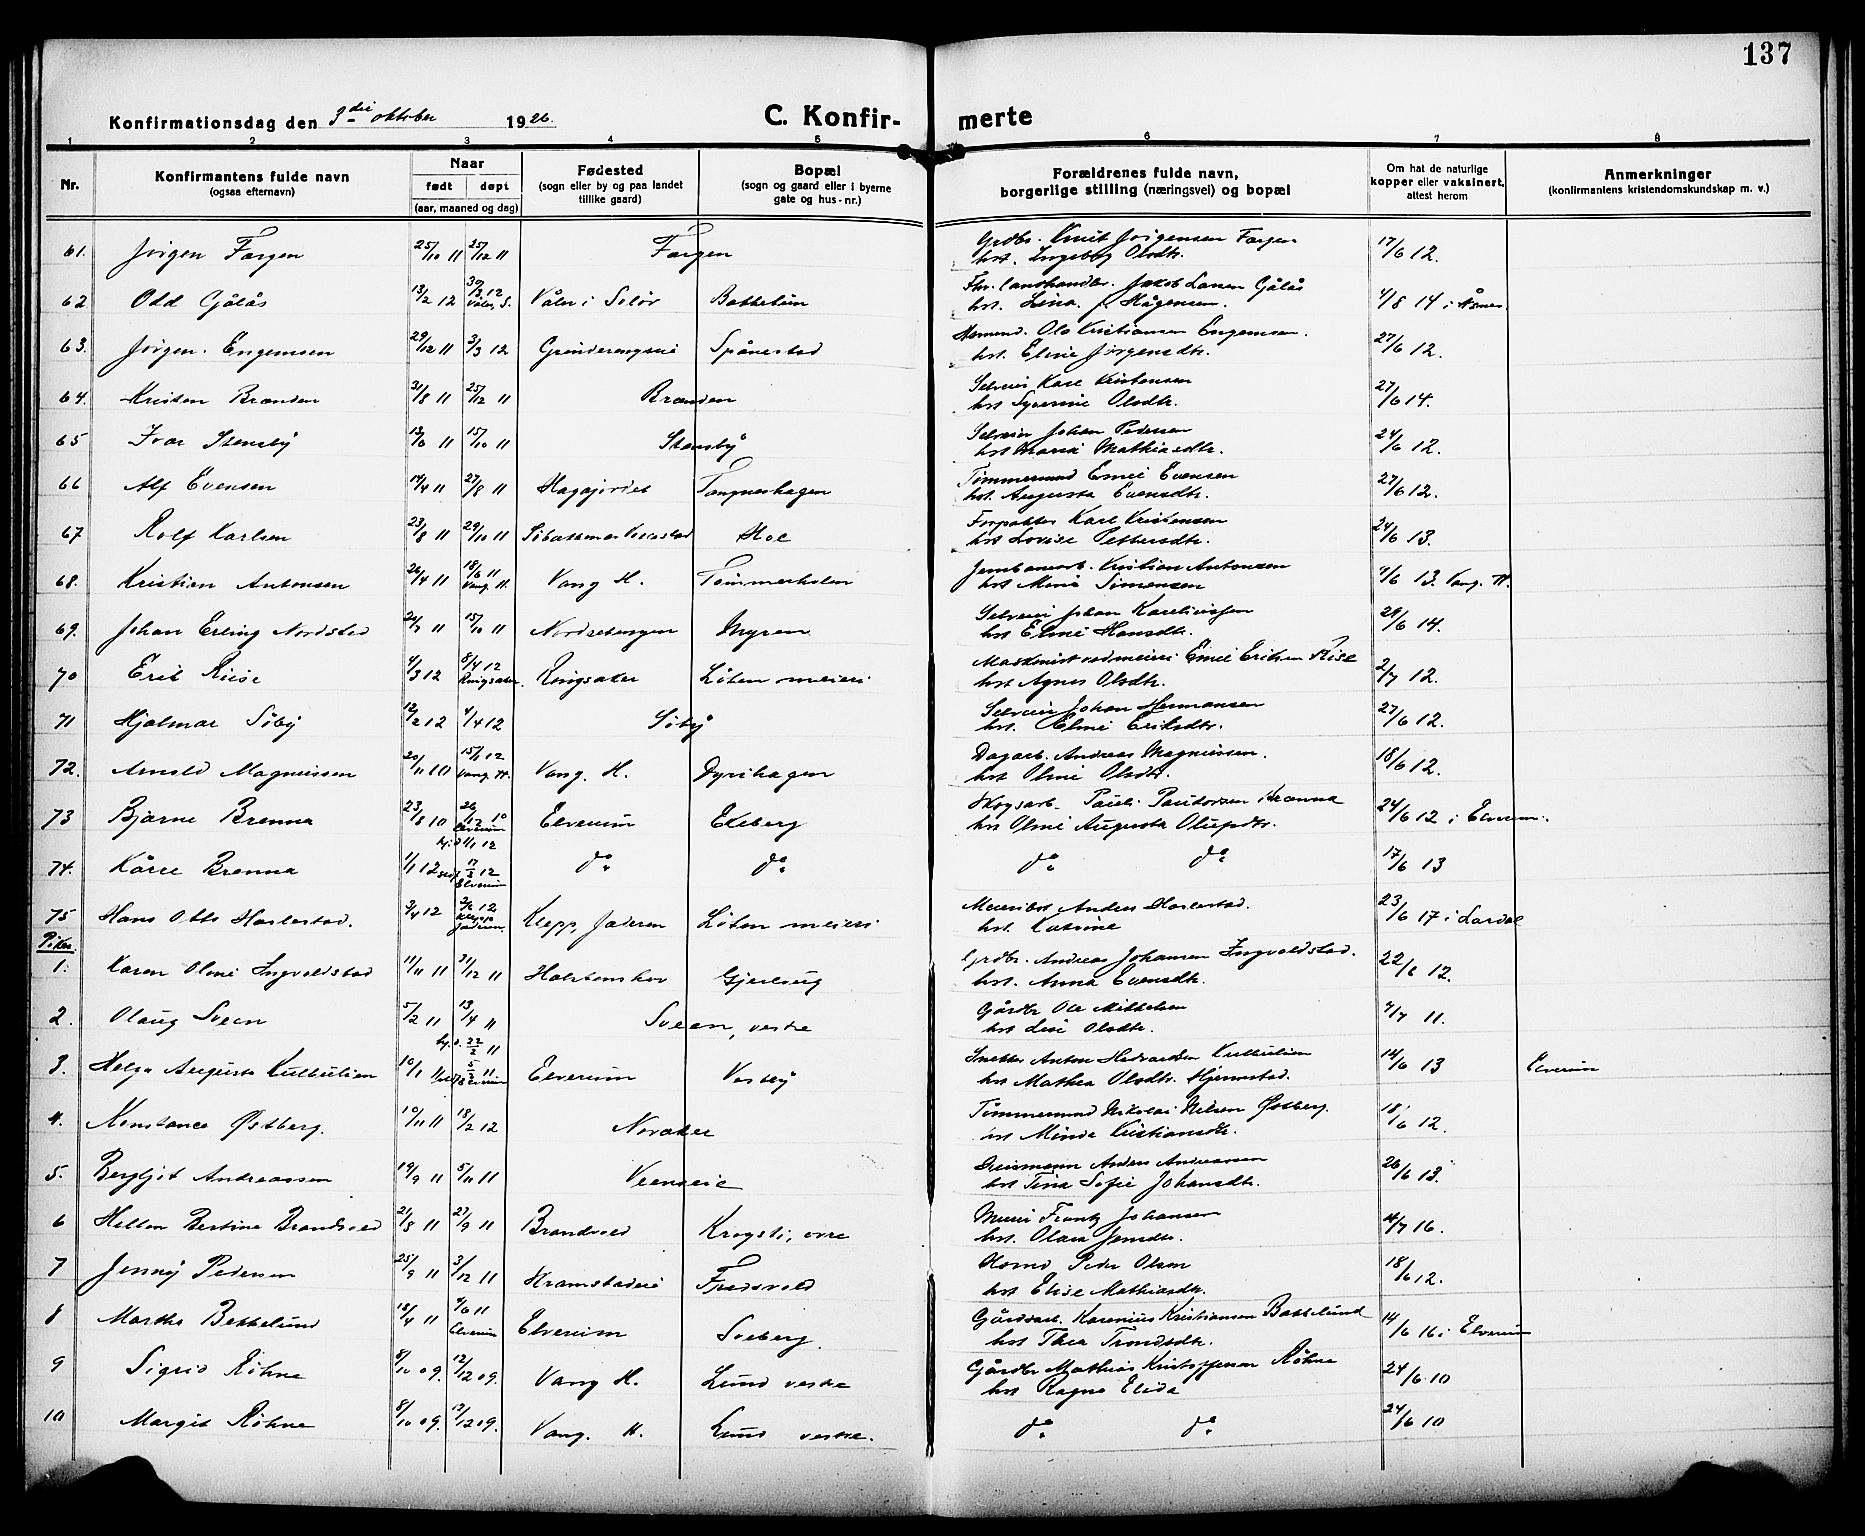 137
Konfirmationsdag den 3die oktober 1926. C. Konfirmerte
1 2 3 4 5 6 7 8
Nr. Konfirmantens fulde navn (ogsaa efternavn) Naar født døpt (aar, maaned og dag) Fødested (sogn eller by og paa landet tillike gaard) Bopæl (sogn og gaard eller i byerne gate og hus-nr.) Forældrenes fulde navn, borgerlige stilling (næringsvei) og bopæl Om hat de naturlige kopper eller vaksinert, attest herom Anmerkninger (konfirmantens kristendomskundskap m. v.)
61. Jörgen Fargen 25/10 11 25/12 11 Fargen Grdbr. Knut Jörgensen Fargen hst. Ingeborg Olsdtr. 17/6 12.
62 Odd Gålås 13/2 12 Våler i Solör Bakkelun Fhv. landhandler Jakob Larsen Gålås hst. Lina f. Hågensen. 4/8 14 i Åsnes.
63. Jörgen Engemoen 29/12 11 3/3 12 Grinderengseie Spånestad Ole Kristiansen Engemoen. hst. Eline Jörgensdtr. 27/6 12.
64. Kristen Brænden 31/8 11 25/12 11 Brænden Selveier Karl Kristensen hst Syverine Olsdtr. 27/6 14.
65 Ivar Stensby 11 15/10 11 Stensby Selveier Johan Pedersen hst Maria Mathiasdtr. 24/6 12.
66 Alf Evensen 14/4 11 27/8 11 Hagajordet Tangneshagen Tömmermand Emil Evensen hst. Augusta Evensdtr. 27/6 12.
67 Rolf Karlsen 23/8 11 29/10 11 Hol Forpakter Karl Kristensen hst Lovise Pettersdtr. 24/6 13.
68. Kristian Antonsen 26/4 11 18/6 11 Vang H. Vang H. Tommerholen Jernbanearb. Kristian Antonsen hst Mina Simensen 13. Vang. H.
69. Johan Erling Nordstad 11 15/10 11 Nordsetengen Myren Selveier Johan hst Eline Hansdtr. 29/6 14.
70 Erik Riise 4/3 12 8/4 12 Ringsaker. Ringsaker Löten meieri Maskinist ved meieri Emil Eriksen Riise hst Agnes Olsdtr. 2/7 12.
71 Hjalmar Söby 12/2 12 4/4 12 Söby Selveier Johan Hermansen hst. Oline Eriksdtr. 27/6 12.
72. Arnold Magnussen 20/11 10 12 Vang. H. Vang. H. Dyrihagen Dagarb. Andreas Magnussen. hst Oline Olsdtr. 18/6 12.
73 Bjarne Brenna 23/8 10 26/12 10 Elverum Elverum Ekeberg Skogsarb. Paul Paulsen Brænna hst Oline Augusta Olufsdtr. 24/6 12 i Elverum.
74. Kåre Brenna 1/1 12 12 Elverum do do do do 17/6 13
75 Hans Otto Harlestad. 3/4 12 12 Klepp Jæderen Klepp, Jæderen Löten meieri Meieribst Anders Harlestad. hst. Katrine 23/6 17 i Lardal
Piker.
1. Karen Oline Ingvaldstad 11/11 11 31/12 11 Holstenskov Gjerlug Grdbr. Andreas Johansen Ingvaldstad. hst. Anna Evensdtr. 22/6 12.
2. Olaug Sveen 5/2 11 13/4 11 Sveen, vestre Gårdbr Ole Mikkelsen hst Lise Olsdtr. 4/7 11.
3. Helga Augusta Kulbulien 10/1 11 11 Elverum Elverum Vestby Snekker Anton Kulbulien hst Mathea Olsdtr. Hjernstad. 14/6 13 Elverum
4. Konstance Østberg. 10/11 11 18/2 12 Noraker Tömmermand Nikolai Nilsen Østberg. hst Minda Kristiansdtr. 18/6 12.
5. Bergljot Andreassen 19/9 11 5/11 11 Veenseie Anders Andreassen hst Tina Sofie Johansdtr. 26/6 13.
6 Bertine Brandvold 21/8 11 27/9 11 Brandvold Krogsti, övre Frantz Johansen hst. Olava Jensdtr. 14/7 16.
7 Jenny Pedersen 25/9 11 3/12 11 Kramstadeie Fredsvold Peder Olsen hst Elise Mathiasdtr. 18/6 12.
8 Martha Bekkelund 18/4 11 4/6 11 Elverum Elverum Soeberg. Gårdsarb. Karenius Kristiansen Bakkelund hst Thea Trondsdtr. 14/6 16 i Elverum
9 Sigrid Röhne 8/10 09. 12/12 09. Vang H. Lund vestre Gårdbr Mathias Kristoffersen Röhne hst Ragna Elida 24/6 10
10 Margit Röhne 8/10 09. 12/12 09. Vang. H. Lund vestre. do do 24/6 10